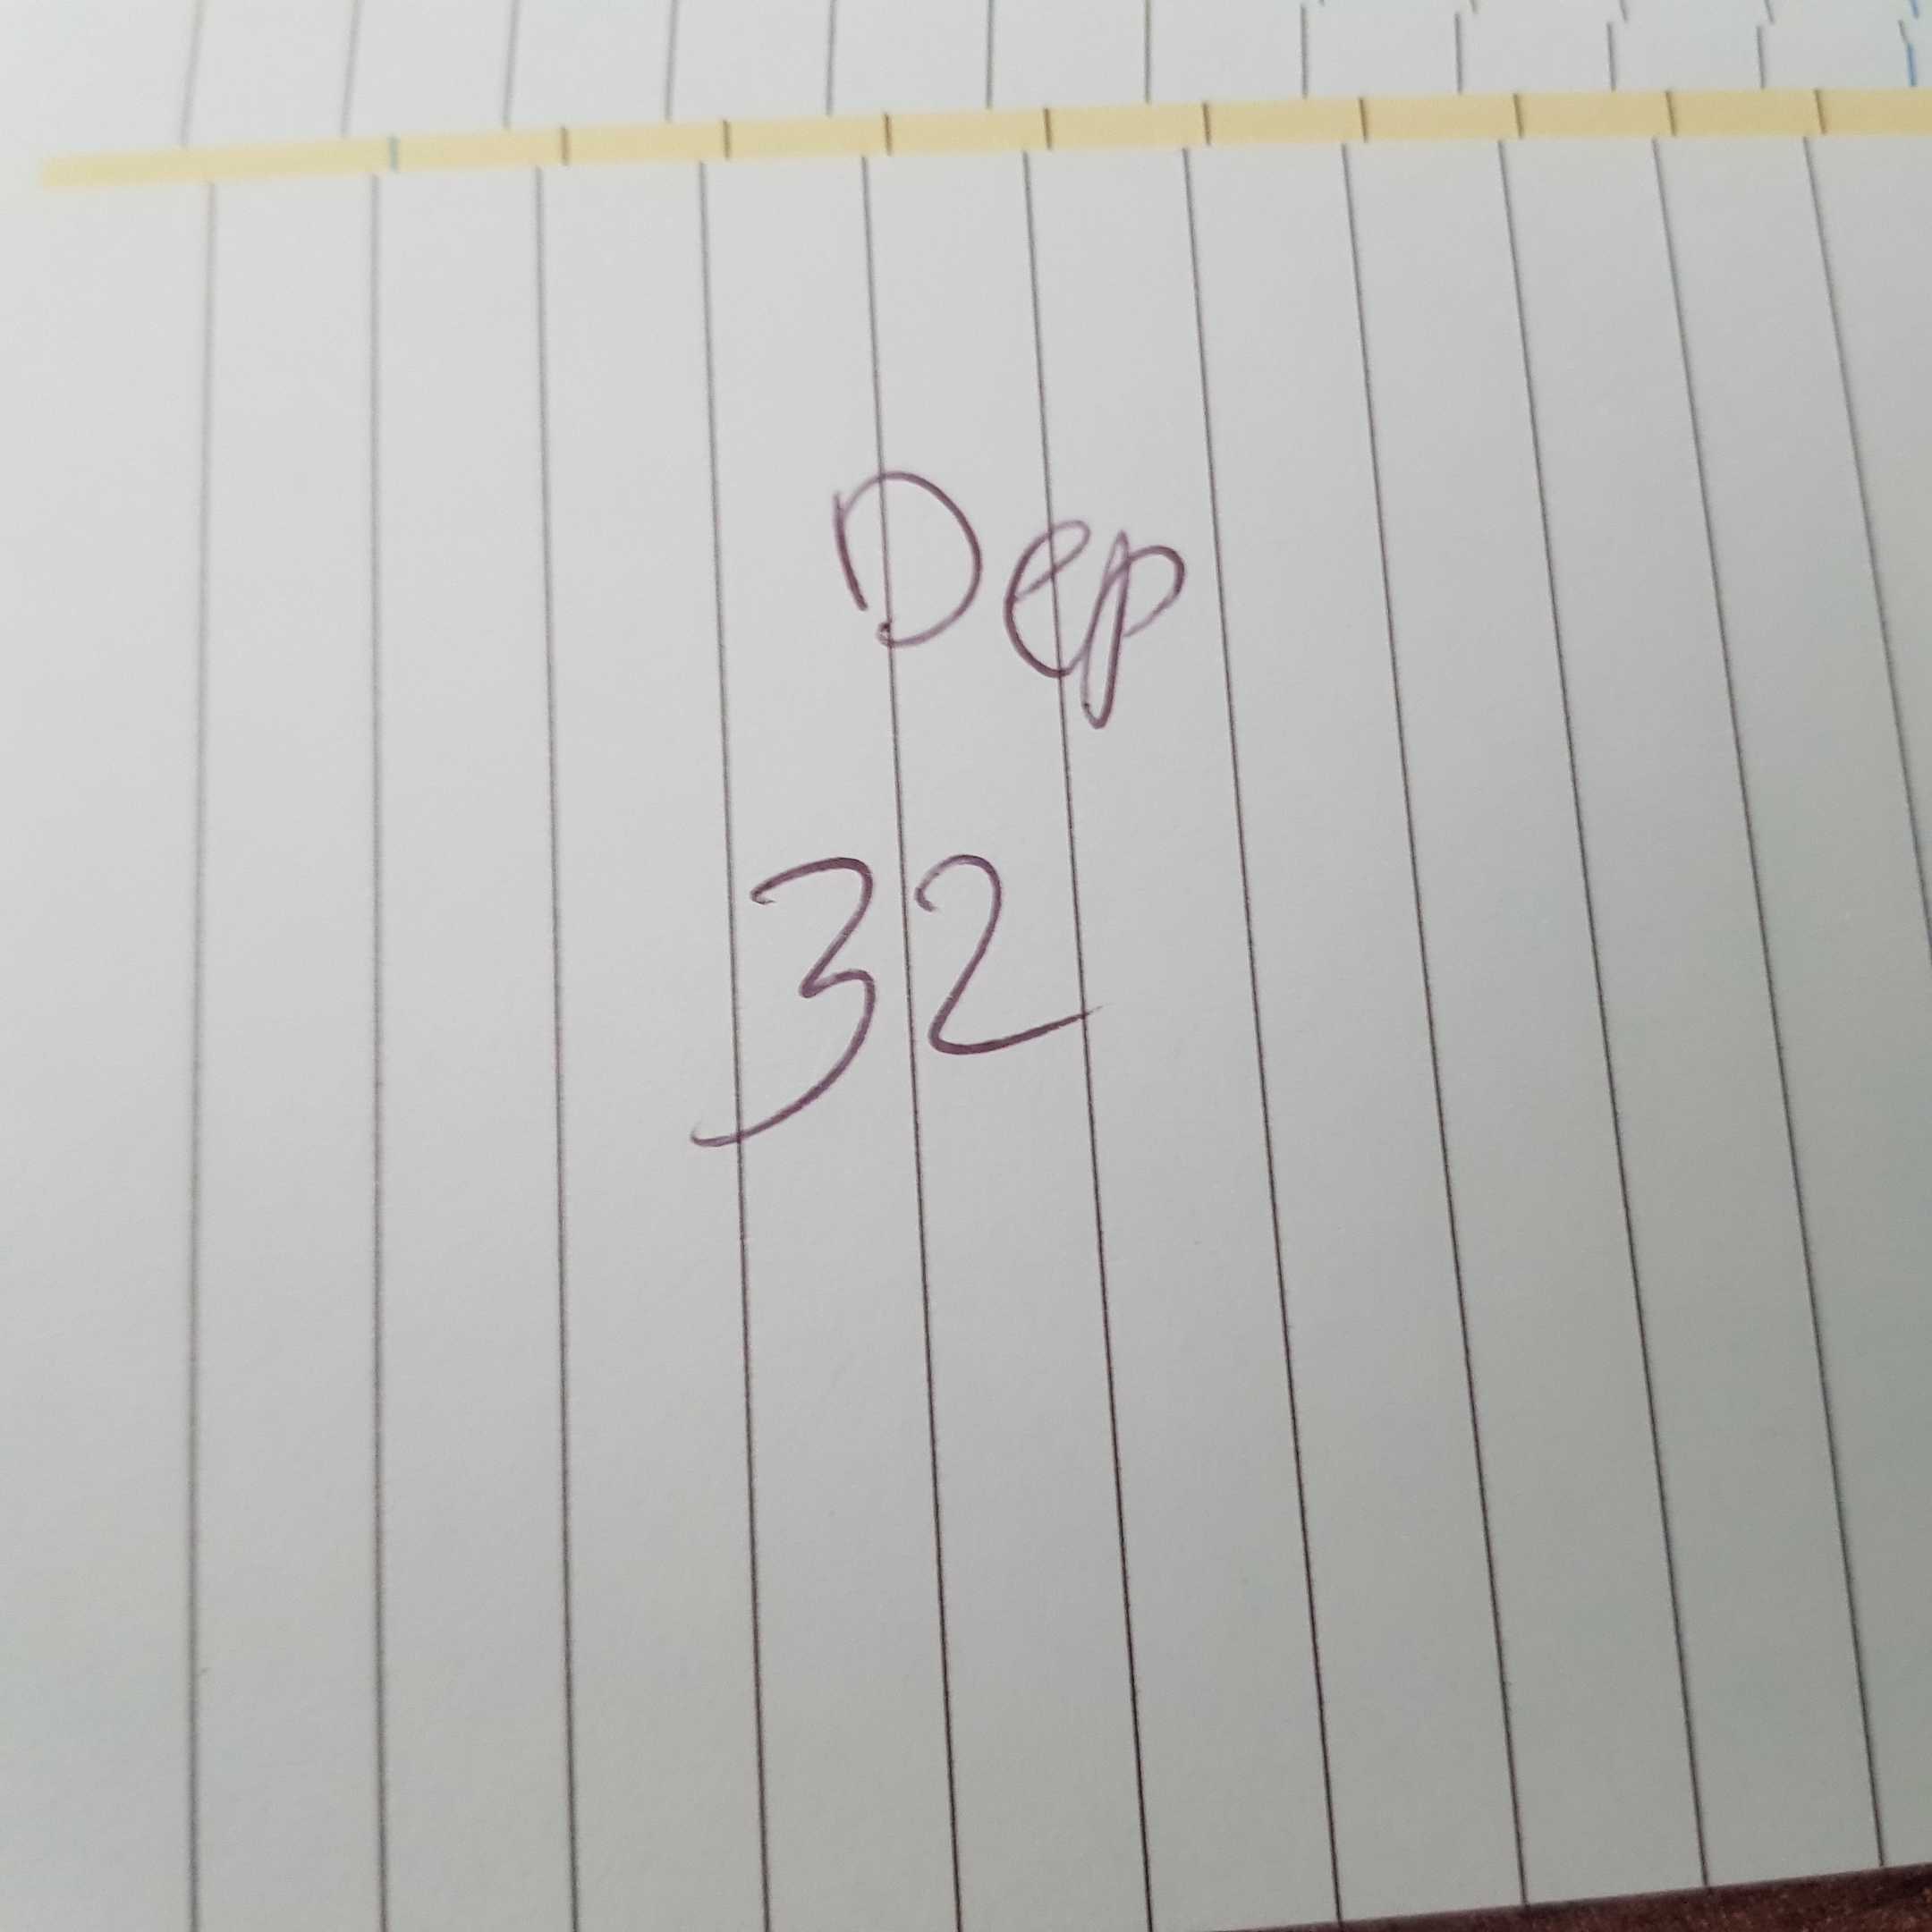 Dep
32